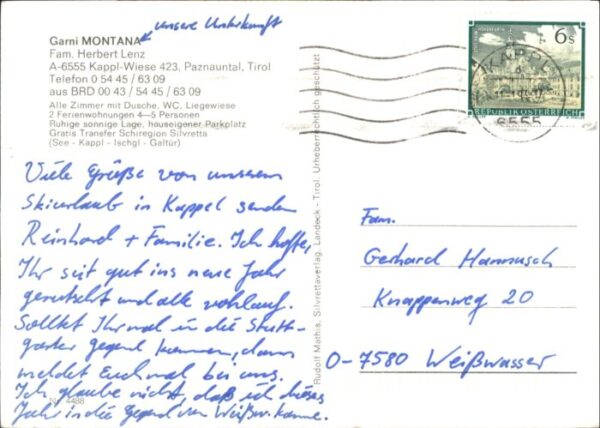 unsere Unterkunft
Garni MONTANA
Fam. Herbert Lenz
A-6555 Kappl-Wiese 423, Paznauntal, Tirol
Telefon 0 54 45 / 63 09
aus BRD 00 43 / 54 45 / 63 09
Alle Zimmer mit Dusche, WC, Liegewiese
2 Ferienwohnungen 4—5 Personen
Ruhige sonnige Lage, hauseigener Parkplatz
Gratis Transfer Schiregion Silvretta
(See - Kappl - Ischgl - Galtür)
Viele Grüße von unserem
Skiurlaub in Kappel senden
Reinhard + Familie. Ich hoffe,
Ihr seit gut ins neue Jahr
gerutscht und alle wohlauf.
Solltet Ihr mal in die Stutt-
garter Gegend kommen, dann
meldet Euch mal bei uns.
Ich glaube nicht, daß ich dieses
Jahr in die Gegend von Weißw. komme.
Nr. 4488
Rudolf Mathis, Silvrettaverlag, Landeck - Tirol. Urheberrechtlich geschützt
6 S
REPUBLIK ÖSTERREICH
KAPPL
6555
Fam.
Gerhard Hannusch
Knappenweg 20
O-7580 Weißwasser